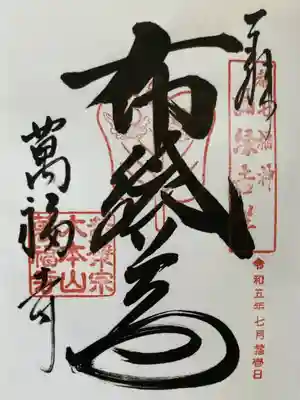 奉拝
都七福神
布袋尊
令和五年七月
萬福寺
黄檗宗
大本山
萬福寺